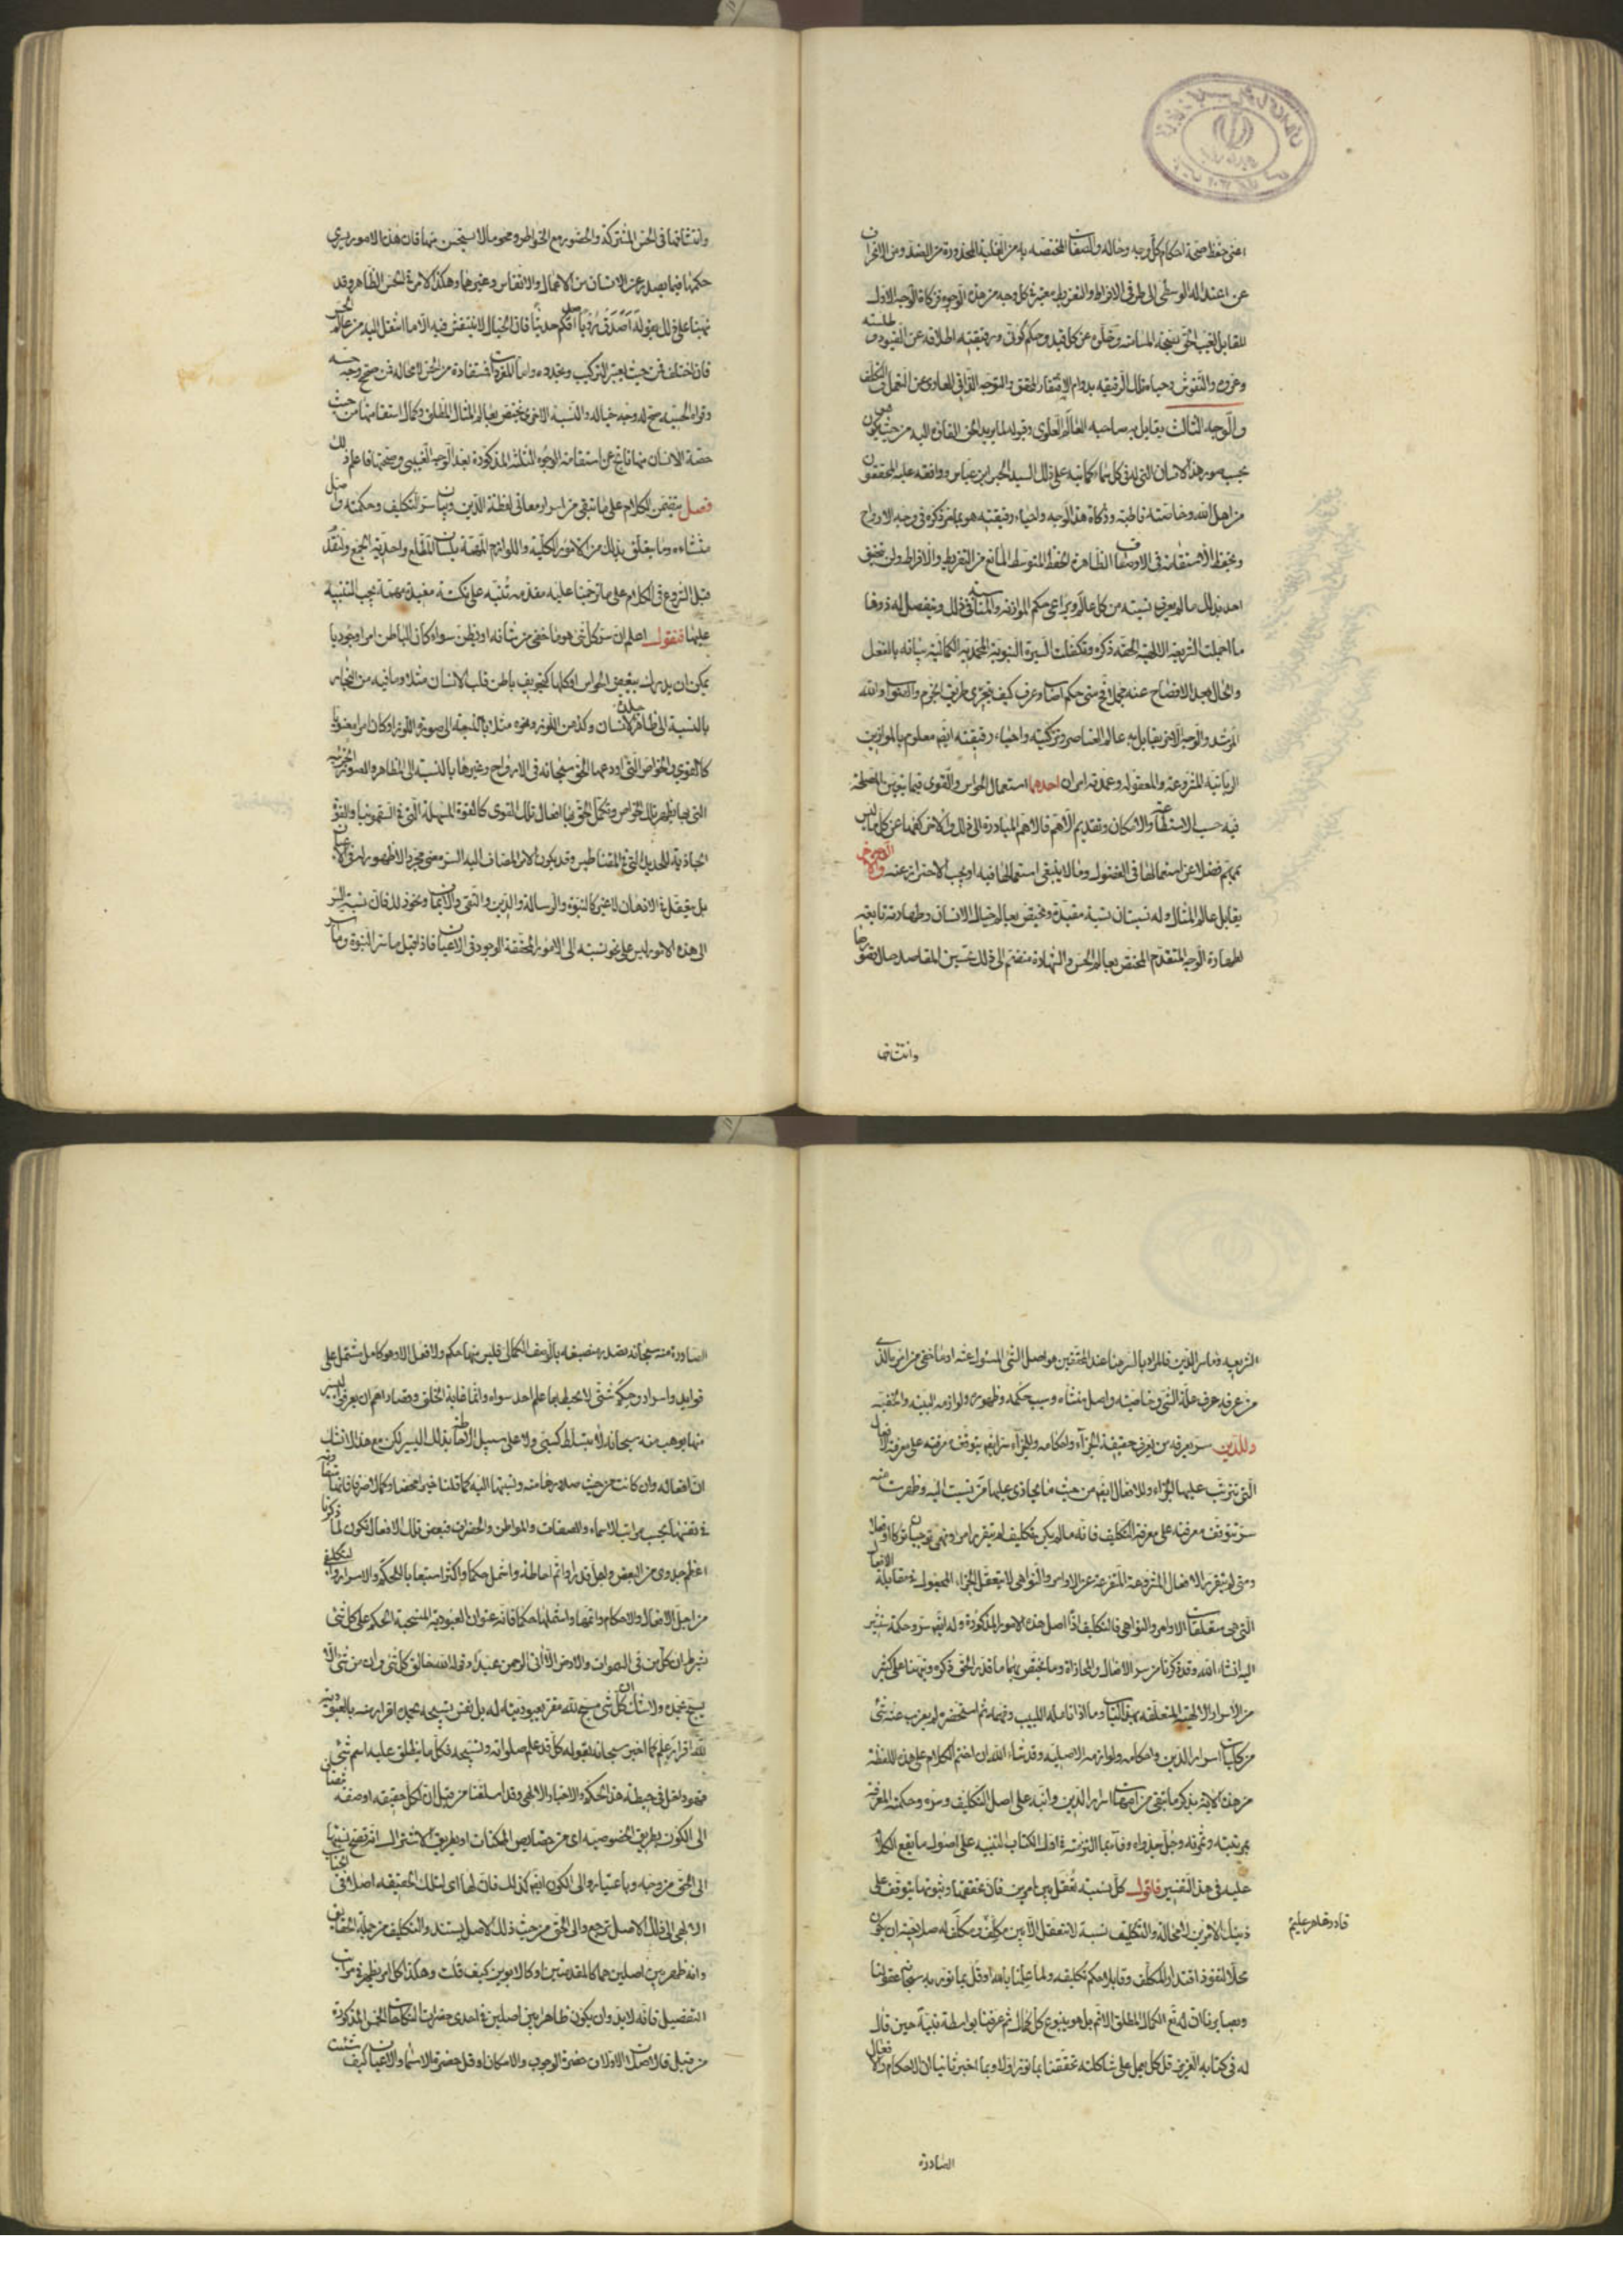 اعنى حفظ صحة احكام كل وجه وحاله والصفات المختصه به من الغلبة المحذورة من الضد ومن الانحراف
عن اعتداله الوسطى الى طرفى الافراط والتفريط معتبرة كل وجه من هذه الوجوه فزكاة الوجه الاول
المقابل للغيب الحق بصحة المسامته وخلوه عن كل قيد وحكم كونى ورقيقته اطلاقه عن القيود
وعروه والنقوش وحياة تلك الرقيقه بدوام الافتقار المحقق والتوجه الذاتى العارى عن التعمل والتكلف
والوجه الثالث يقابل به صاحبه العالم العلوى وقبوله لما يريد الحق القاؤه اليه من حيث يكون
بحسب صور هذا الانسان التى له فى كل سماء كما نبه على ذلك السيد الحبر ابن عباس ووافقه عليه المحققون
من اهل الله وخاصته قاطبة وزكاة هذا الوجه واحياء رقيقته هو بما مر ذكره فى وجه الارواح
وبحفظ الاستقامة فى الاوصاف الظاهرة لحفظ المتوسط المانع من التفريط والافراط ولن يتحقق
احد بذلك ما لم يعرف نسبته من كل عالم ويراعى حكم الموازنه والمناسبة فى ذلك ويتفصل له ذوقا
ما اجملت الشريعة الالهية الحقه ذكره وتكفلت السيرة النبوية المحمدية الكمالية بيانه بالفعل
والحال بعد الافصاح عنه مجملا فمتى حكم اصاب وعرف كيف يتحرى طريق الجزم والصواب والله
المرشد والوجه الاخر يقابل به عالم العناصر وتزكيته واحياء رقيقته ايضا معلوم بالموازين
الربانية المشروعة والمعقولة وعمدته امران احدهما استعمال الحواس والقوى فيما يتعين المصلحة
فيه حسب الاستطاعة والامكان وتقديم الاهم فالاهم المبادرة الى ذلك والاخر كفها عن كل ما ليس
بمهم فضلا عن استعمالها فى الفضول وما لا ينبغى استعمالها فيه او يجب الاحتراز عنه والوجه الاخر
يقابل عالم المثال وله نسبتان نسبة مقيدة ويختص بعالم خيال الانسان وطهارته تابعة
لطهارة الوجه المتقدم المختص بعالم الحس والشهادة منضم الى ذلك تحسين المقاصد حال تصورها
وانتشائها
وانتشائها فى الحس المشترك والحضور مع الخواطر ومحو ما لا يستحسن منها فان هذه الامور يسرى
حكمها فيما يصدر عن الانسان من الاعمال والانفاس وغيرهما وهكذا الامر فى الحس الظاهر وقد
نبهنا على ذلك بقوله اصدقكم رؤيا اصدقكم حديثا فان الخيال لا ينتقش فيه الا ما انتقل اليه من عالم الحس
فان اختلف فمن حيث تغير التركيب وتجدده واما المفردات فمستفادة من الحس لا محالة فمن صح وجه حسه
وقواه الحسيه صح له وجه خياله والنسبه الاخرى يختص بعالم المثال المطلق وكمال استقامتها من حيث
حصة الانسان منها ناتج عن استقامة الوجوه الثلثة المذكورة بعد الوجه الغيبى وصحتها فاعلم ذلك
فصل يتضمن الكلام على ما تبقى من اسرار معانى لفظة الدين وبيان سر التكليف وحكمته واصل
منشاءه وما يتعلق بذلك من الامور الكلية واللوازم المهمة بلسان المطلع واحدية الجمع ولنقدم
قبل الشروع فى الكلام على ما ترجمنا عليه مقدمة تنبيه على نكتة مفيدة مهمة يجب التنبيه
عليها فنقول اعلم ان سر كل شئ هو ما خفى من شانه او بطن سواء كان الباطن امرا وجوديا
يمكن ان يدرك ببعض الحواس او كلها كتجويف باطن قلب الانسان مثلا وما فيه من البخار
بالنسبة الى ظاهر جلدة الانسان وكدهن اللوز ونحوه مثلا بالنسبة الى صورة اللوز او كان امرا معنويا
كالقوى والخواص التى اودعها الحق سبحانه فى الارواح وغيرها بالنسبة الى المظاهر والصور الجزئيه
التى بها يظهر تلك الخواص وتكمل الحق بها افعال تلك القوى كالقوة المسهلة التى فى السقمونيا والقوة
الجاذبة للحديد التى فى المغناطيس وقد يكون الامر المضاف اليه السر معنى مجردا لا ظهور له فى الاعيان
بل يتعقل فى الاذهان لا غير كالنبوة والرسالة والدين والتقى والايمان ونحو ذلك فان نسبة السر
الى هذه الامور ليس على نحو نسبته الى الامور المحققة الوجود فى الاعيان فاذا قيل ما سر النبوة وما سر
الشريعه وما سر الدين فالمراد بالسر هنا عند المحققين هو اصل الشئ المسئول عنه او ما خفى من امره الذى
من عرفه عرف علة الشئ وخاصيته واصل منشاه وسبب حكمه وظهوره ولوازمه البينه والخفيه
وللدين سر يعرفه من يعرف حقيقة الجزاء واحكامه وللجزاء سر ايضا يتوقف معرفته على معرفة الافعال
التى تترتب عليها الجزاء وللافعال ايضا من حيث ما يجازى عليها من نسبت اليه وظهرت منه
سر يتوقف معرفته على معرفة التكليف فانه ما لم يكن تكليف لم يتقرر امر ونهى
ومتى لم يتقرر الافعال المشروعة المتفرعة عن الاوامر والنواهى لا يتعقل الجزاء المجعول فى مقابلة الافعال
التى هى متعلقات الاوامر والنواهى فالتكليف اذا اصل هذه الامور المذكورة وله ايضا سر وحكمة سنشير
اليه انشاء الله وقد ذكرنا من سر الافعال والمجازاة وما يختص بهما ما قدر الحق ذكره ونبهنا على كثير
من الاسرار الالهية المتعلقه بهذا الباب وما اذا تامله اللبيب وفهمه ثم استحضره لم يعزب عنه شئ
من كليات اسرار الدين واحكامه ولوازمه الاصليه وقد شاء الله ان اختم الكلام على هذه اللفظة
من هذه الاية بذكر ما تبقى من امهات اسرار الدين وانبه على اصل التكليف وسره وحكمته المعرفة
بمرتبته وثمرته وجل جدواه وفآء بما التزمته فى اول الكتاب التنبيه على اصول ما يقع الكلام
عليه فى هذا التفسير فاقول كل نسبة تعقل بين امرين فان تحققها وثبوتها يتوقف على
ذينك الامرين لا محالة والتكليف نسبة لا تتعقل الا بين مكلف ومكلف له صلاحية ان يكون
محلا لنفوذ اقتدار المكلف وقابلا حكم تكليفه ولما علمنا بالله اولا وقبل بما نور به سبحانه عقولنا
وبصائرنا ان له تع الكمال المطلق الاتم بل هو ينبوع كل كمال ثم عرفنا بواسطة نبيه حين قال
له فى كتابه العزيز قل كل يعمل على شاكلته تحققنا بما نور اولا وبما اخبر ثانيا ان الاحكام والافعال
قادر قاهر عليم
الصادرة
الصادرة منه سبحانه تصدر منصبغة بالوصف الكمالى فليس منها حكم ولا فعل الا وهو كامل مشتمل على
فوايد واسرار وحكم شتى لا يحيط بها علم احد سواه وانما غاية الخلق وقصاراهم ان يعرفوا اليسير
منها بوهب منه سبحانه لا بتسلط كسبى ولا على سبيل الاحاطة بذلك اليسير لكن مع هذا لا نشك
ان افعاله وان كانت من حيث صدورها منه ونسبتها اليه كما قلنا خيرا محضا وكمالا صرفا فانها متفاوتة
فى نفسها بحسب مراتب الاسماء والصفات والمواطن والحضرات فبعض تلك الافعال تكون لما ذكرنا
اعظم جدوى من البعض واجل قدرا واتم احاطة واشمل حكما واكثر استيعابا للحكم والاسرار والتكليف
من اجل الافعال والاحكام واتمها واشملها حكما فانه عنوان العبودية المنسحبة الحكم على كل شئ
بشرط ان كل من فى السموات والارض الا اتى الرحمن عبدا وقوله الله خالق كل شئ وان من شئ الا
يسبح بحمده ولا شك ان كل شئ مسبح لله مقر بعبوديته له بل نفس تسبيحه بحمده اقرار منه بالعبودية
لله اقرار علم كما اخبر سبحانه بقوله كل قد علم صلواته وتسبيحه فكل ما يطلق عليه اسم شئ
فهو داخل فى حيطة هذا الحكم والاخبار الالهى وقد اسلفنا من قبل ان لكل حقيقه او صفه
الى الكون بطريق الخصوصية اى من خصايص الممكنات او بطريق الاشتراك انه تصح نسبتها
الى الحق من وجه وباعتبار والى الكون ايضا كذلك فان لها اى لتلك الحقيقه اصلا فى
الالهى الى ذلك الاصل ترجع والى الحق من حيث ذلك الاصل يستند والتكليف من جملة الحقايق
وانه ظهر بين اصلين هما كالمقدمتين او كالابوين كيف قلت وهكذا كل امر يظهر فى مراتب
التفصيل فانه لا بد وان يكون ظاهرا بين اصلين فى احدى حضرات النكاحات الخمس المذكورة
من قبل فالاصلان الاولان حضرة الوجوب والامكان او قل حضرة الاسماء والاعيان كيف شئت